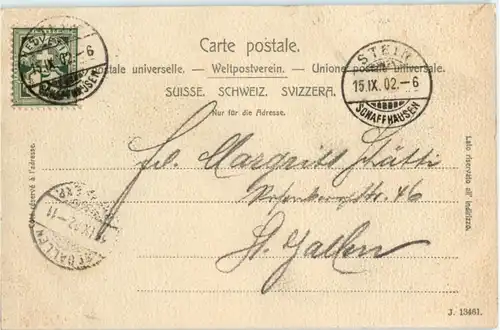 Carte postale.
postale universelle. — Weltpostverein. — Unione postale universale.
SUISSE. SCHWEIZ. SVIZZERA.
Nur für die Adresse.
STEIN
15.IX.02.-6
SCHAFFHAUSEN
15.IX.02.-6
Côté réservé à l'adresse.
Lato riservato all' indirizzo.
Frl. Margrits Schätti
Rosenbergstr. 46
St. Gallen
J. 13461.